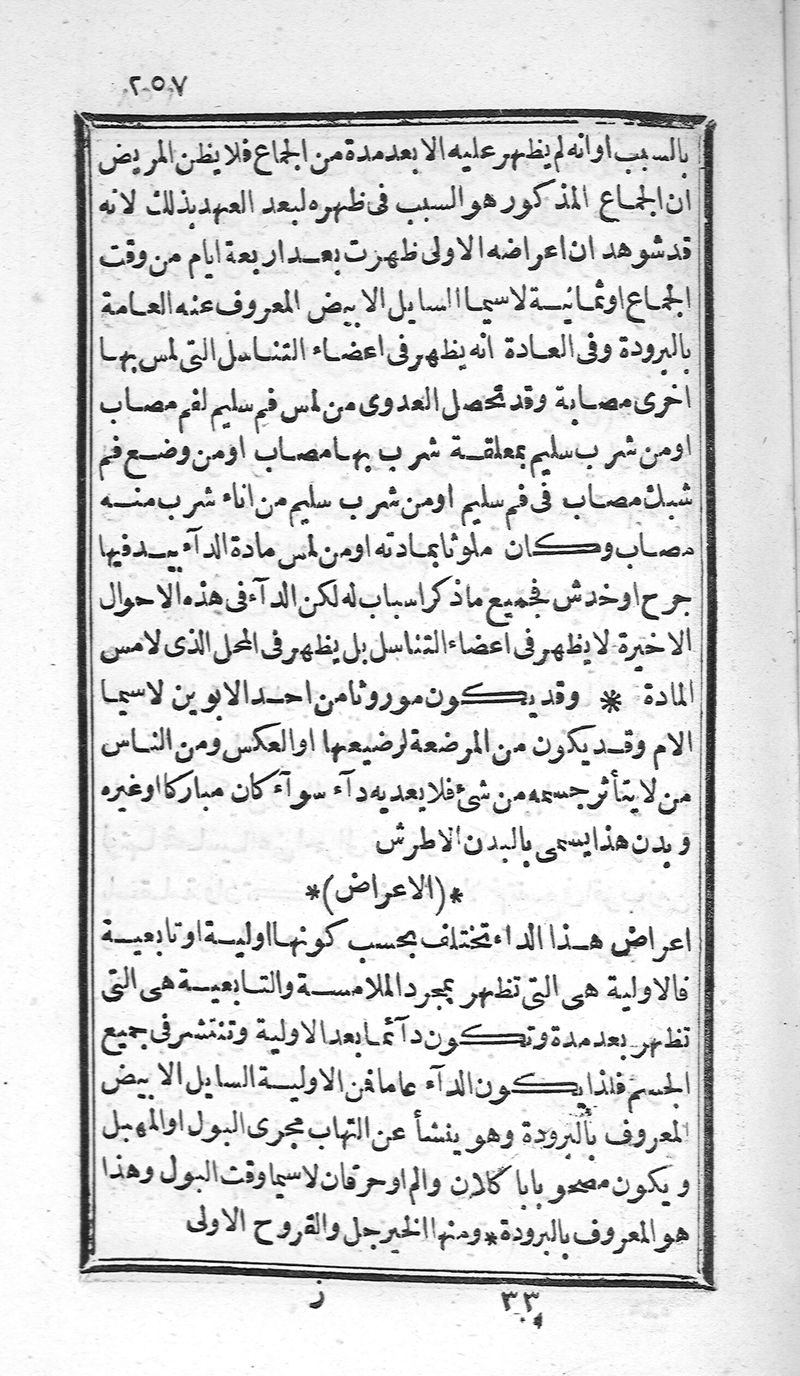 ٢٥٧
بالسبب او انه لم يظهر عليه الا بعد مدة من الجماع فلا يظن المريض
ان الجماع المذكور هو السبب فى ظهره لبعد العهد بذلك لانه
قد شوهد ان اعراضه الاولى ظهرت بعد اربعة ايام من وقت
الجماع او ثمانية لاسيما السايل الابيض المعروف عنه العامة
بالبرودة وفى العادة انه يظهر فى اعضاء التناسل التى لمس بها
اخرى مصابة وقد تحصل العدوى من لمس فم سليم لفم مصاب
او من شرب سليم بمعلقة شرب بها مصاب او من وضع فم
شبك مصاب فى فم سليم او من شرب سليم من اناء شرب منه
مصاب وكان ملوثا بمادته او من لمس مادة الدآء بيد فيها
جرح او خدش فجميع ما ذكر اسباب له لكن الدآء فى هذه الاحوال
الاخيرة لا يظهر فى اعضاء التناسل بل يظهر فى المحل الذى لامس
المادة * وقد يكون موروثا من احد الابوين لاسيما
الام وقد يكون من المرضعة لرضيعها او العكس ومن الناس
من لا يتأثر جسمه من شئ فلا يعديه دآء سوآء كان مباركا او غيره
وبدن هذا يسمى بالبدن الاطرش
*(الاعراض)*
اعراض هذا الداء تختلف بحسب كونها اولية او تابعية
فالاولية هى التى تظهر بمجرد الملامسة والتابعية هى التى
تظهر بعد مدة وتكون دآئما بعد الاولية وتنتشر فى جميع
الجسم فلذا يكون الدآء عاما فمن الاولية السايل الابيض
المعروف بالبرودة وهو ينشأ عن التهاب مجرى البول او المهبل
ويكون مصحوبا باكلان والم او حرقان لاسيما وقت البول وهذا
هو المعروف بالبرودة * ومنها الخيرجل والقروح الاولى
٣٣ ز